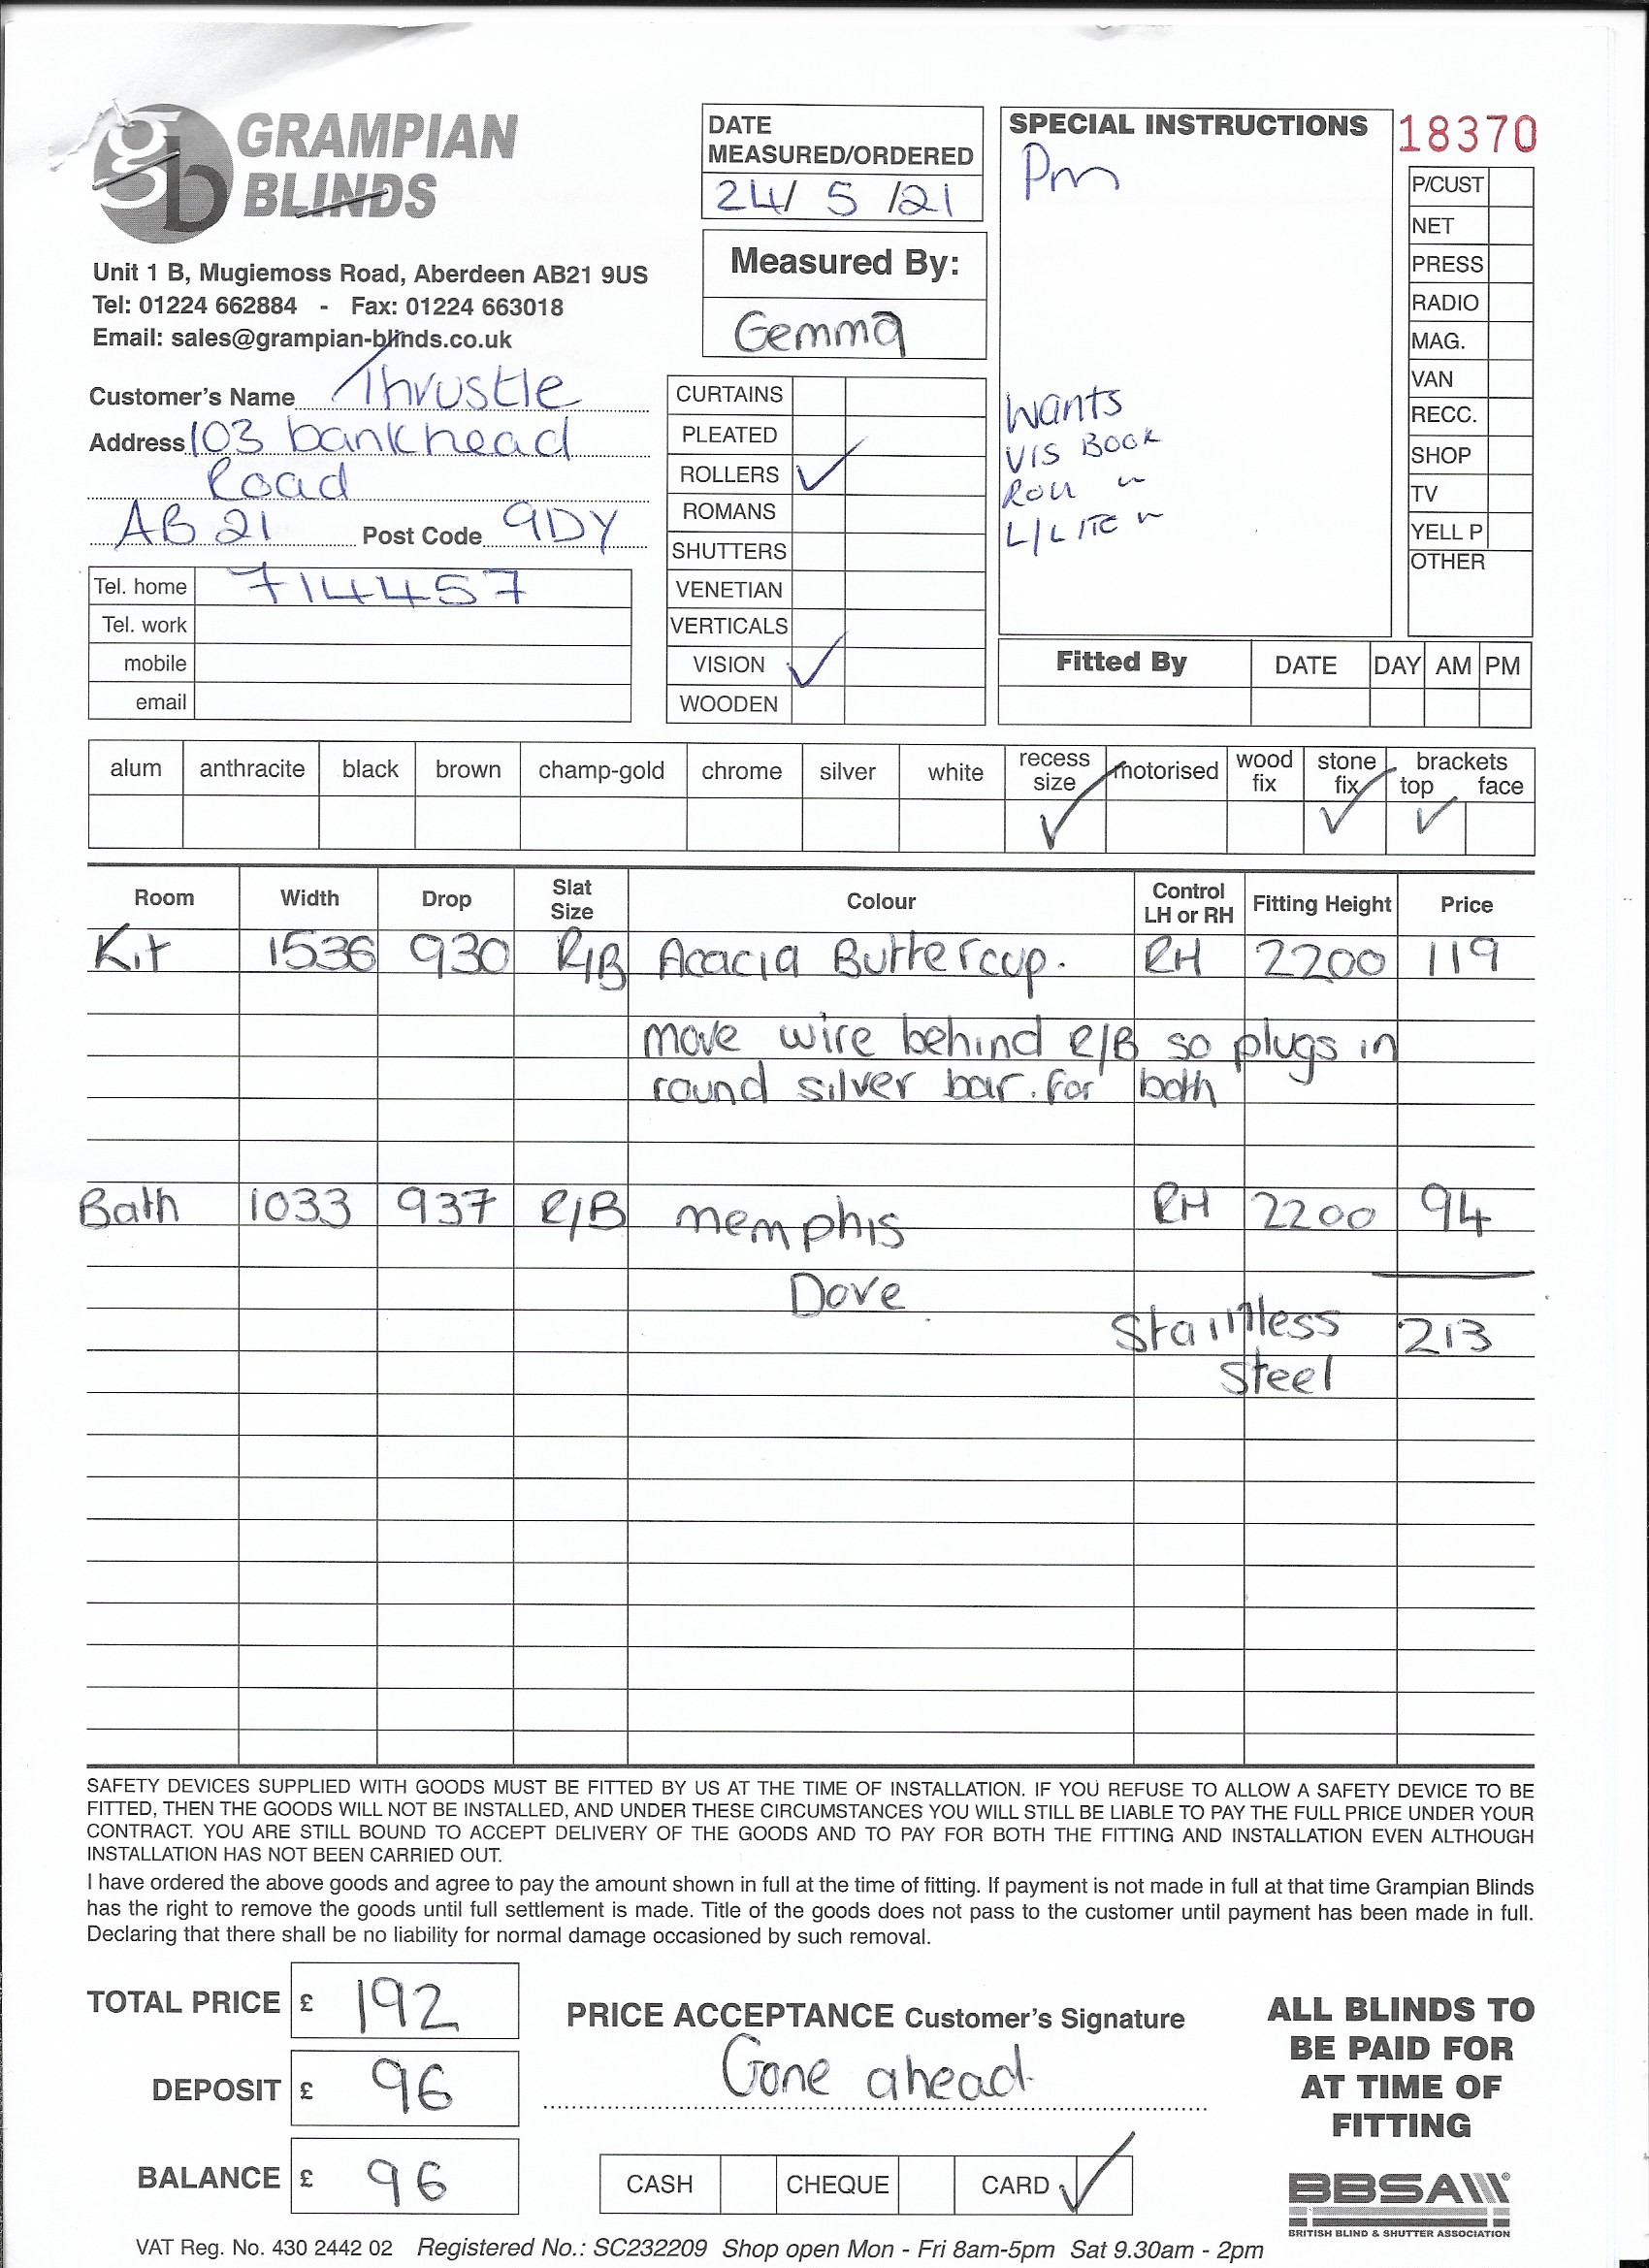 gb GRAMPIAN
BLINDS
Unit 1 B, Mugiemoss Road, Aberdeen AB21 9US
Tel: 01224 662884 - Fax: 01224 663018
Email: sales@grampian-blinds.co.uk
Customer's Name Thrustle
Address 103 bankhead
Road
AB21 Post Code 9DY
Tel. home 714457
Tel. work
mobile
email
DATE
MEASURED/ORDERED
24/ 5 /21
Measured By:
Gemma
CURTAINS
PLEATED
ROLLERS ✓
ROMANS
SHUTTERS
VENETIAN
VERTICALS
VISION ✓
WOODEN
SPECIAL INSTRUCTIONS
Pm
Wants
VIS BOOK
ROLL "
L/LITE "
18370
P/CUST
NET
PRESS
RADIO
MAG.
VAN
RECC.
SHOP
TV
YELL P
OTHER
Fitted By DATE DAY AM PM
alum anthracite black brown champ-gold chrome silver white recess size ✓ motorised wood fix stone fix ✓ brackets top ✓ face
Room Width Drop Slat Size Colour Control LH or RH Fitting Height Price
Kit 1536 930 R/B Acacia Buttercup. RH 2200 119
move wire behind R/B so plugs in
round silver bar. for both
Bath 1033 937 R/B memphis RH 2200 94
Dove
Stainless 213
Steel
SAFETY DEVICES SUPPLIED WITH GOODS MUST BE FITTED BY US AT THE TIME OF INSTALLATION. IF YOU REFUSE TO ALLOW A SAFETY DEVICE TO BE
FITTED, THEN THE GOODS WILL NOT BE INSTALLED, AND UNDER THESE CIRCUMSTANCES YOU WILL STILL BE LIABLE TO PAY THE FULL PRICE UNDER YOUR
CONTRACT. YOU ARE STILL BOUND TO ACCEPT DELIVERY OF THE GOODS AND TO PAY FOR BOTH THE FITTING AND INSTALLATION EVEN ALTHOUGH
INSTALLATION HAS NOT BEEN CARRIED OUT.
I have ordered the above goods and agree to pay the amount shown in full at the time of fitting. If payment is not made in full at that time Grampian Blinds
has the right to remove the goods until full settlement is made. Title of the goods does not pass to the customer until payment has been made in full.
Declaring that there shall be no liability for normal damage occasioned by such removal.
TOTAL PRICE £ 192
DEPOSIT £ 96
BALANCE £ 96
PRICE ACCEPTANCE Customer's Signature
Gone ahead
CASH CHEQUE CARD ✓
ALL BLINDS TO
BE PAID FOR
AT TIME OF
FITTING
BBSA
BRITISH BLIND & SHUTTER ASSOCIATION
VAT Reg. No. 430 2442 02 Registered No.: SC232209 Shop open Mon - Fri 8am-5pm Sat 9.30am - 2pm